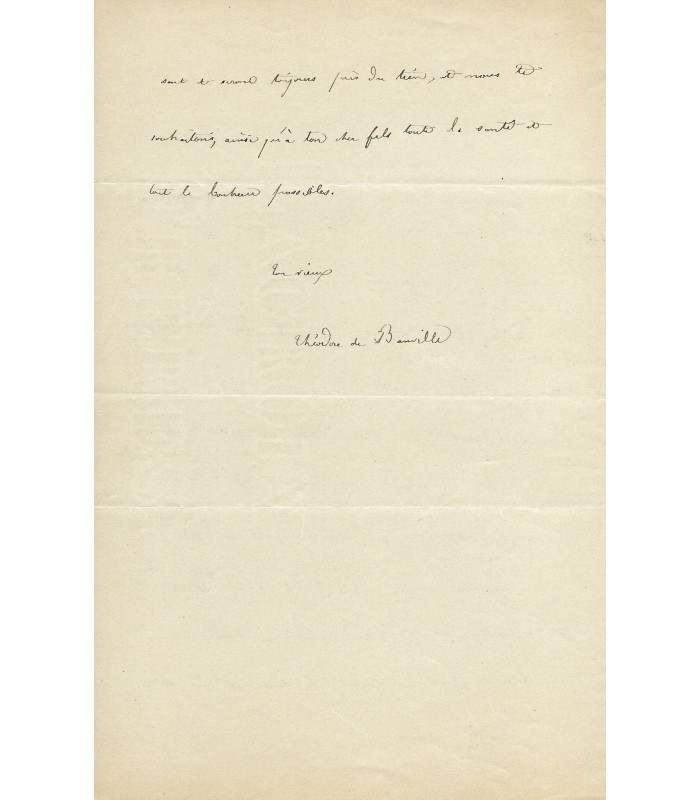 sont et seront toujours près du tien, et nous te
souhaitons, ainsi qu'à ton cher fils toute la santé et
tout le bonheur possibles.
Ton vieux
Théodore de Banville